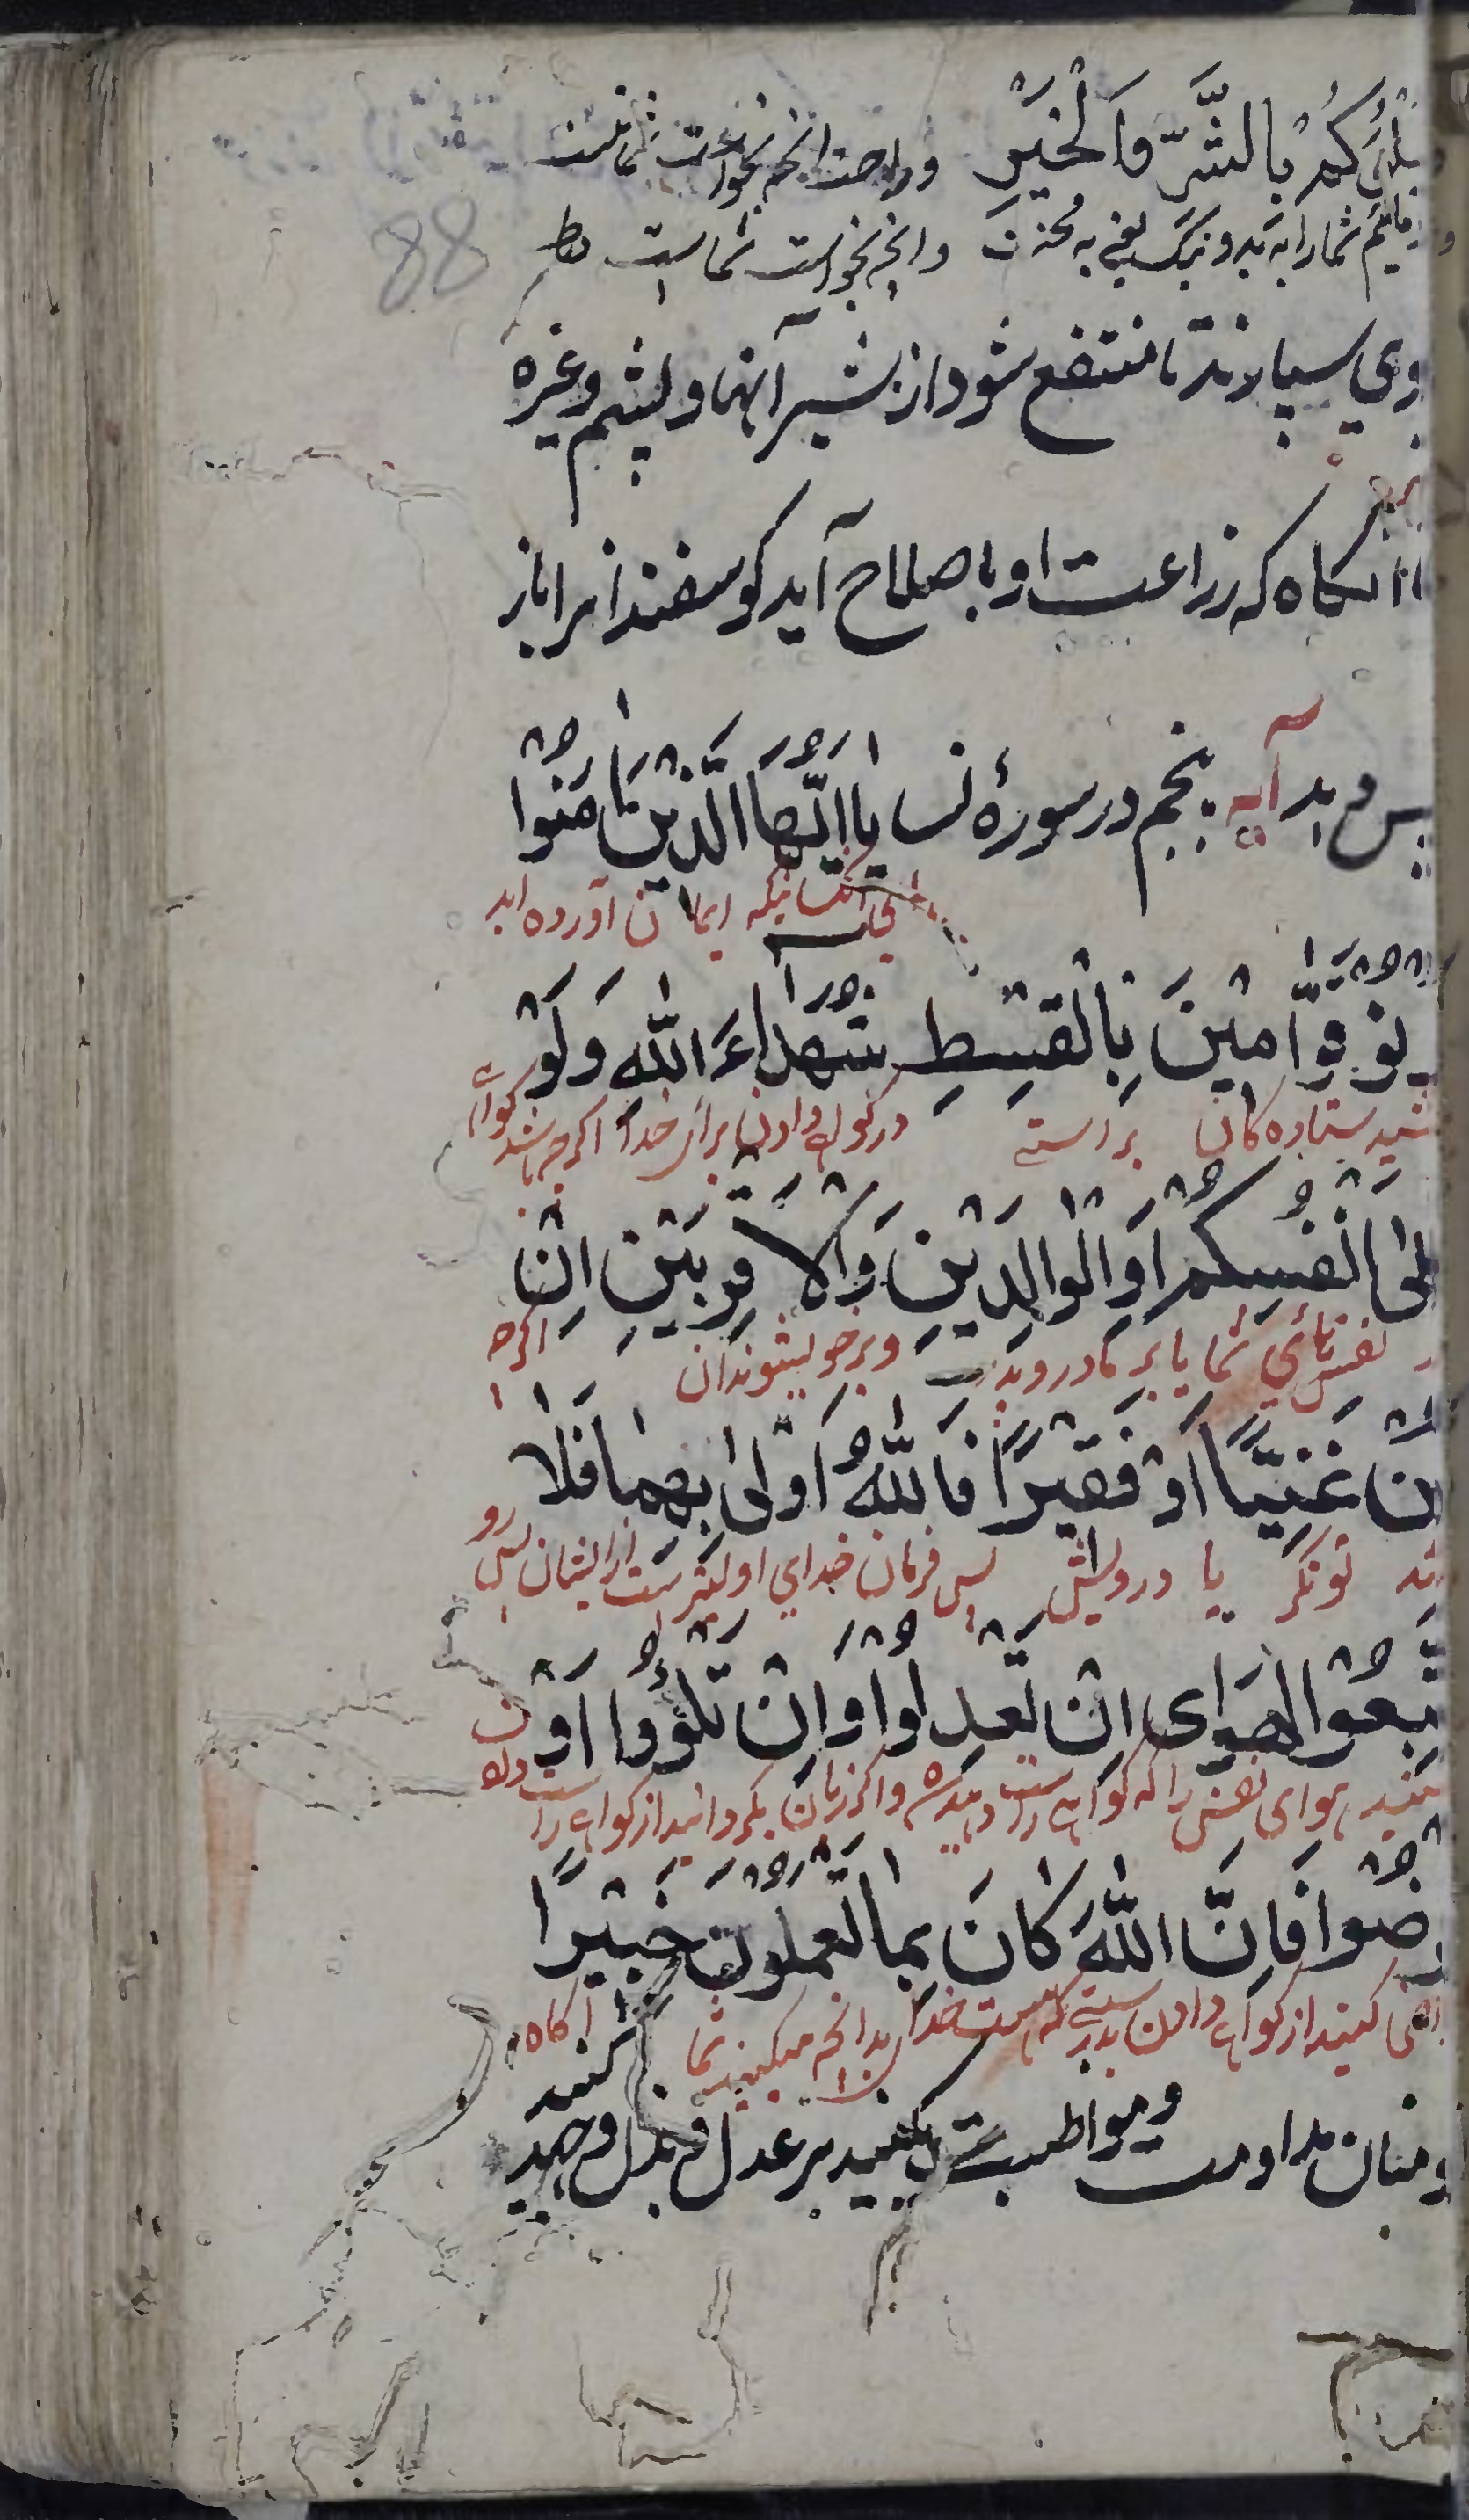 بلوکم بالشر والخیر وراحت انچه بخواهت شماست
مائیم شما را به بد و نیک یعنی به محنت وانچه نخواست شماست
88
وی سپارند تا منتفع شود از شیر آنها و پشم وغیره
تا آنکاه که زراعت او باصلاح آید کوسفندانرا باز
پس دهد آیه پنجم در سورهٔ نسا یا ایها الذین امنوا
آنکسانیکه ایمان آورده اید
نو قوامین بالقسط شهداء الله ولو
شید ستاده کان براستی در کواهی دادن برای خدا اکرچه باشد کواهی
لی انفسکم او الوالدین والاقربین ان
نفسهائی شما یا بر مادر و پدر وبر خویشوندان اکرچه
ن غنیا او فقیرا فالله اولی بهما فلا
ند تونکر یا درویش پس فرمان خدای اولیترست از ایشان پس رو
تبعوا الهوای ان تعدلوا وان تلؤوا او
مکنید هوای نفس را که کواهی راست دهید واکر زبان بکردانید از کواهی راست دادن
رضوا فان الله کان بما تعملون خبیرا
اض کنید از کواهی دادن بدرستی که هست خدا بدانچه میکنید شما آکاه
ومنان مداومت ومواظبت کنید بر عدل وبذل وجهد
کنند